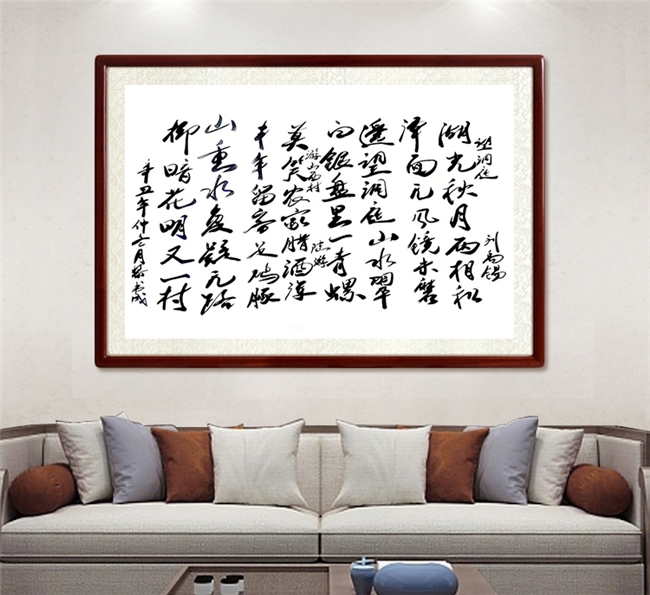 望洞庭
刘禹锡
湖光秋月两相和
潭面无风镜未磨
遥望洞庭山水翠
白银盘里一青螺
游山西村
陆游
莫笑农家腊酒浑
丰年留客足鸡豚
山重水复疑无路
柳暗花明又一村
辛丑年仲月书成